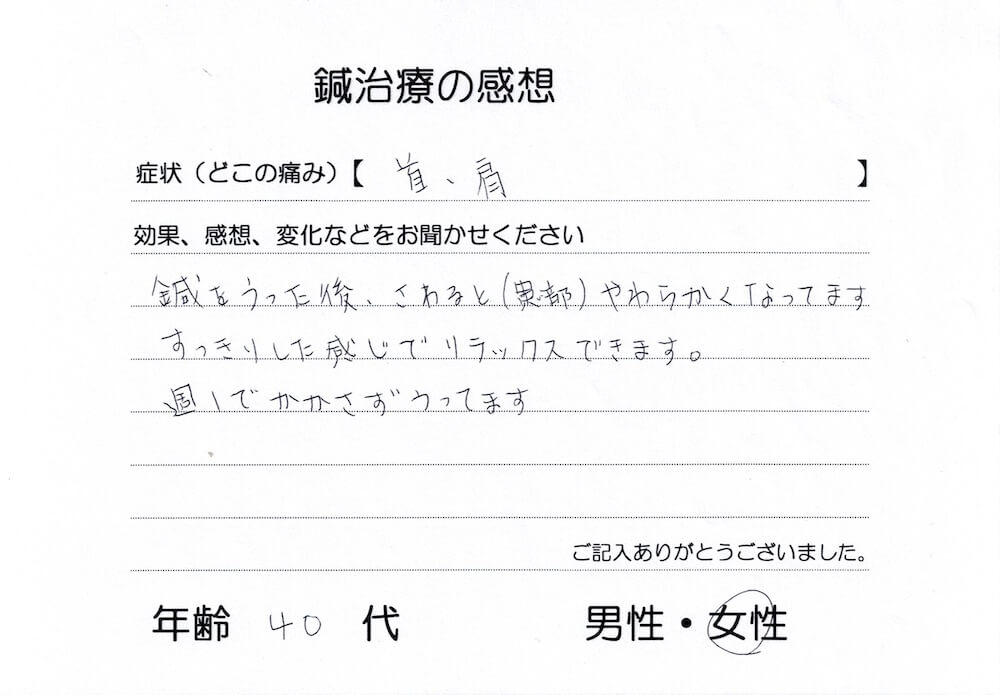 鍼治療の感想
症状（どこの痛み）【 首、肩 】
効果、感想、変化などをお聞かせください
鍼をうった後、さわると（患部）やわらかくなってます
すっきりした感じでリラックスできます。
週1でかかさずうってます
ご記入ありがとうございました。
年齢 40 代 男性・女性